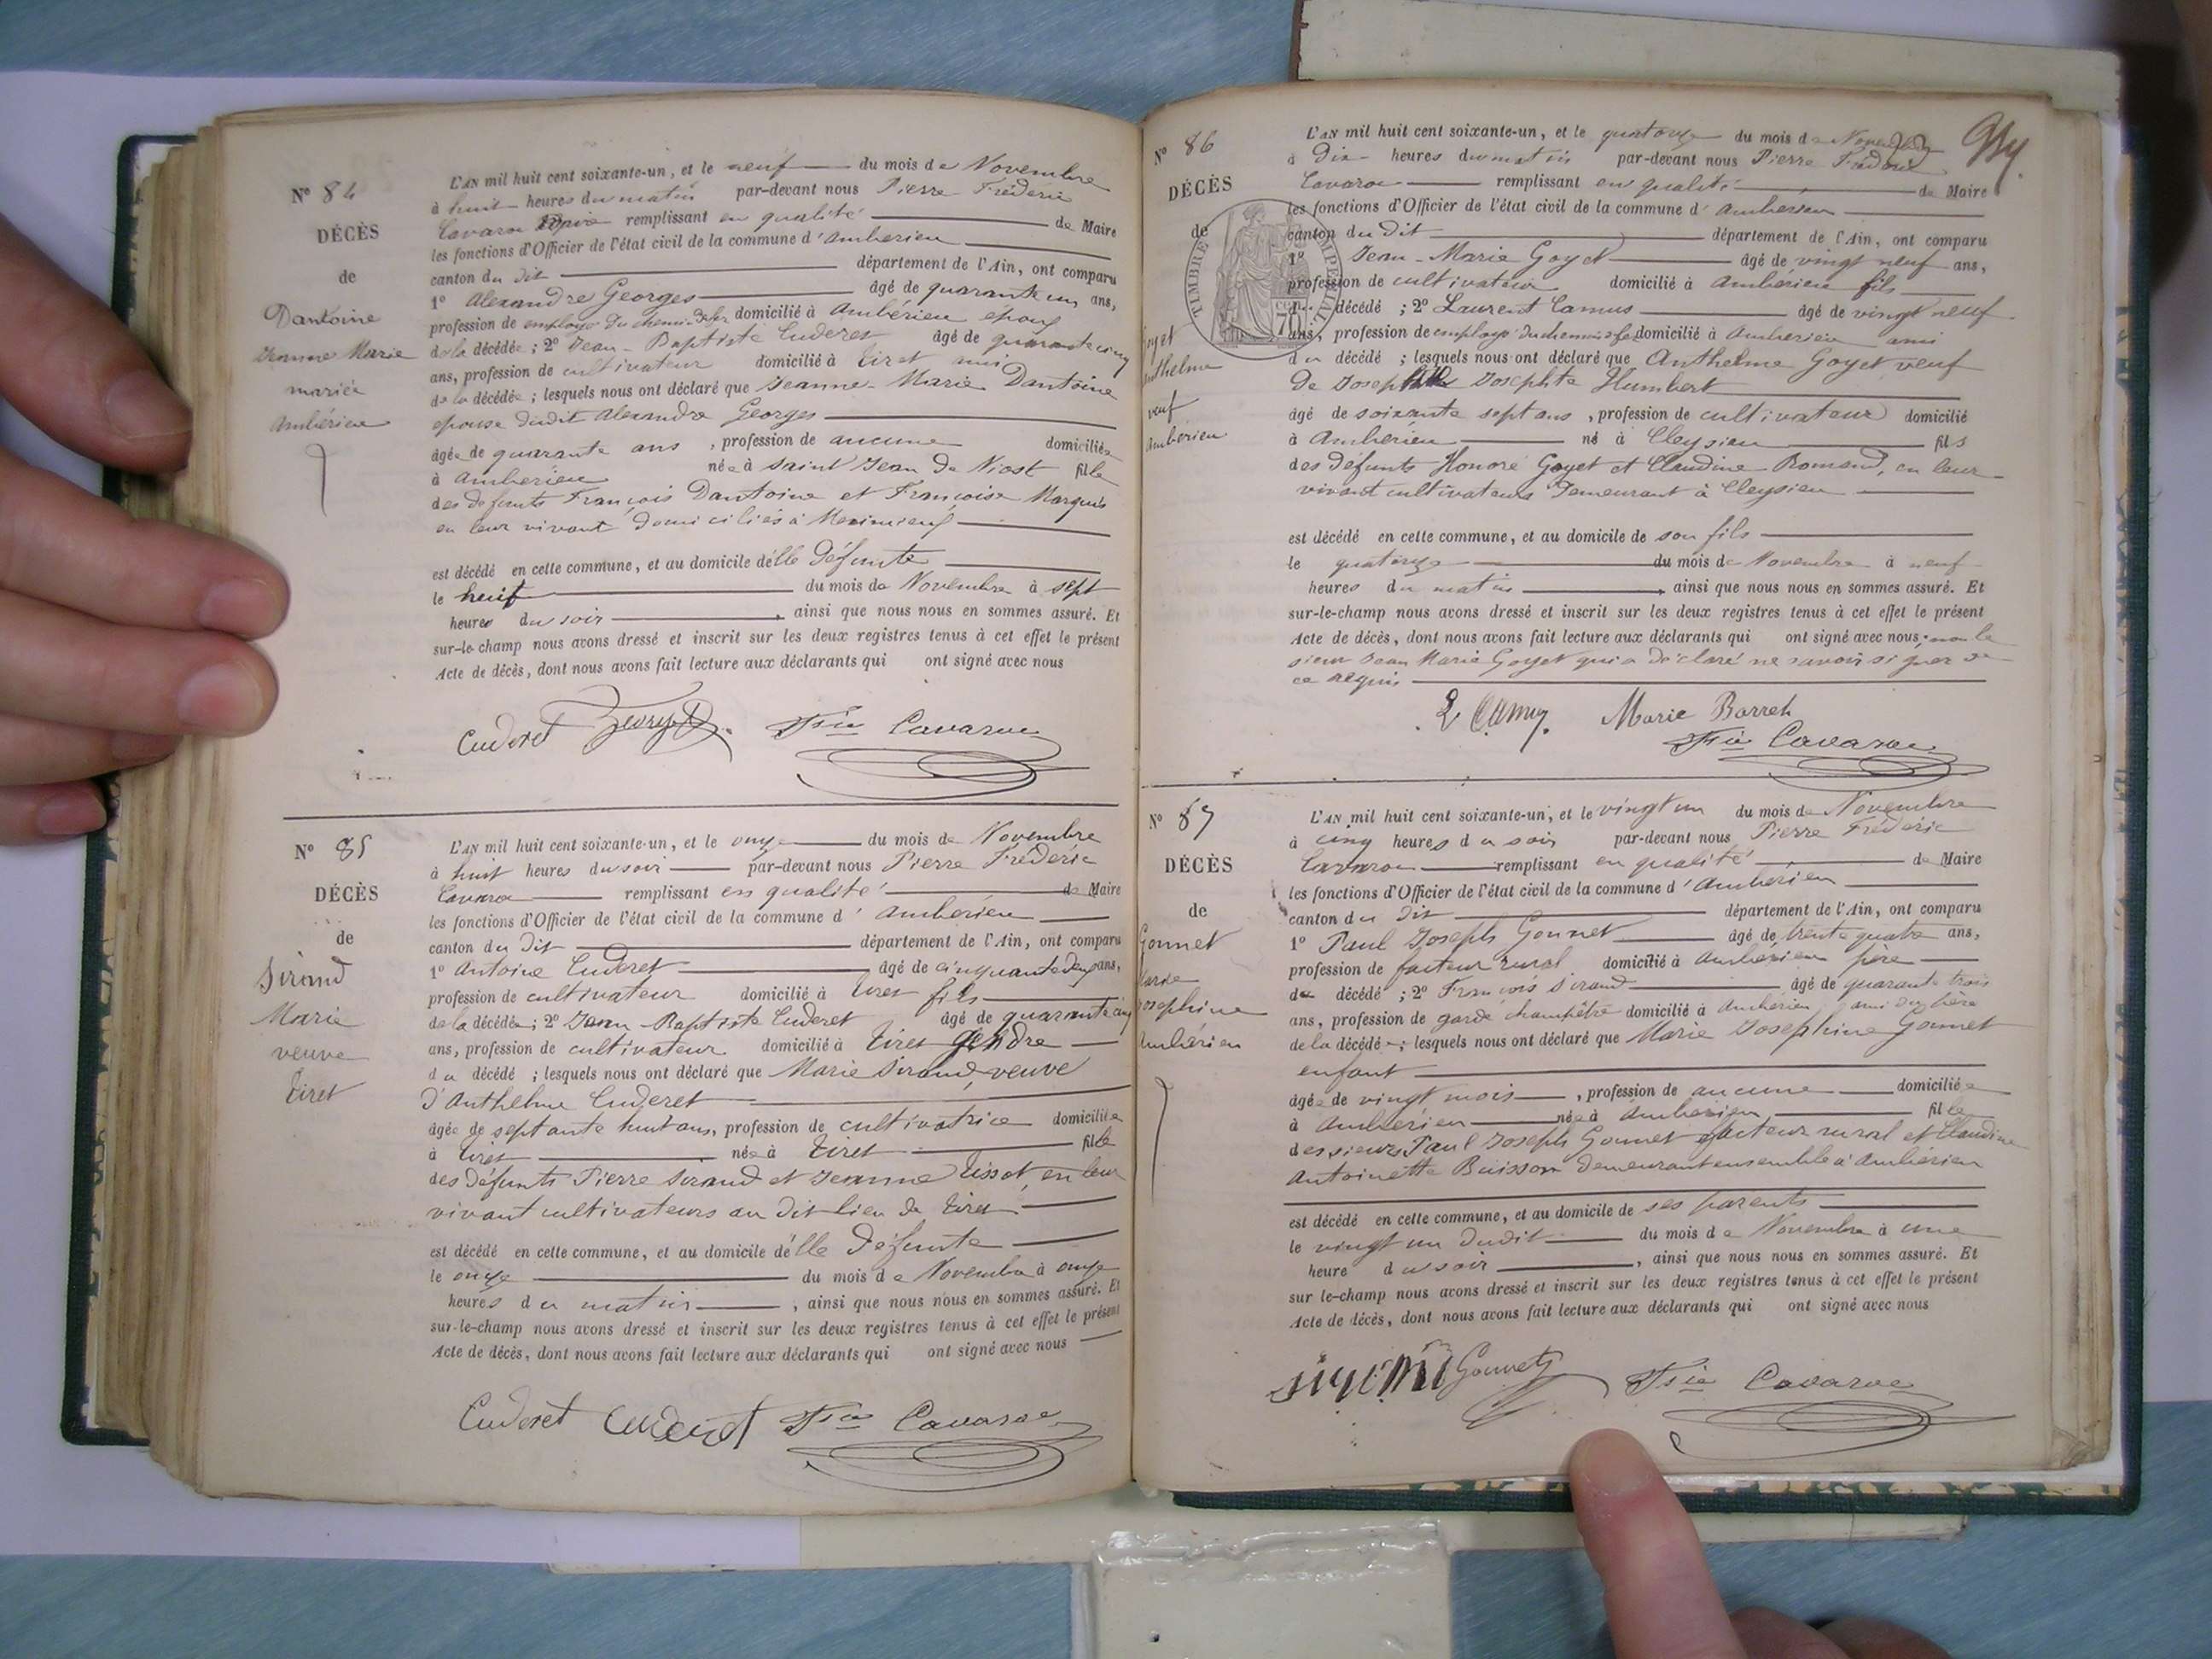 N° 84
DÉCÈS
de
Dantoine
Jeanne Marie
mariée
Ambérieu
L'AN mil huit cent soixante-un, et le neuf du mois de Novembre
à huit heures du matin par-devant nous Pierre Frédéric
Cavaroc remplissant en qualité de Maire
les fonctions d'Officier de l'état civil de la commune d'Ambérieu
canton du dit département de l'Ain, ont comparu
1° Alexandre Georges âgé de quarante un ans,
profession de employé du chemin de fer domicilié à Ambérieu époux
de la décédée ; 2° Jean-Baptiste Cuderet âgé de quarante cinq
ans, profession de cultivateur domicilié à Tiret ami
de la décédée ; lesquels nous ont déclaré que Jeanne-Marie Dantoine
épouse dudit Alexandre Georges
âgée de quarante ans , profession de aucune domiciliée
à Ambérieu née à Saint Jean de Niost fille
des défunts François Dantoine et Françoise Marquis
en leur vivant domiciliés à Meximieux
est décédé en cette commune, et au domicile d'elle défunte
le huit du mois de Novembre à sept
heures du soir , ainsi que nous nous en sommes assuré. Et
sur-le-champ nous avons dressé et inscrit sur les deux registres tenus à cet effet le présent
Acte de décès, dont nous avons fait lecture aux déclarants qui ont signé avec nous
Cuderet Georges Fric Cavaroc
N° 85
DÉCÈS
de
Sirand
Marie
veuve
Tiret
L'AN mil huit cent soixante-un, et le onze du mois de Novembre
à huit heures du soir par-devant nous Pierre Frédéric
Cavaroc remplissant en qualité de Maire
les fonctions d'Officier de l'état civil de la commune d'Ambérieu
canton du dit département de l'Ain, ont comparu
1° Antoine Cuderet âgé de cinquante deux ans,
profession de cultivateur domicilié à Tiret fils
de la décédée ; 2° Jean-Baptiste Cuderet âgé de quarante cinq
ans, profession de cultivateur domicilié à Tiret gendre
du décédé ; lesquels nous ont déclaré que Marie Sirand, veuve
d'Anthelme Cuderet
âgée de septante huit ans, profession de cultivatrice domiciliée
à Tiret née à Tiret fille
des défunts Pierre Sirand et Jeanne Tissot, en leur
vivant cultivateurs au dit lieu de Tiret
est décédé en cette commune, et au domicile d'elle défunte
le onze du mois de Novembre à onze
heures du matin , ainsi que nous nous en sommes assuré. Et
sur-le-champ nous avons dressé et inscrit sur les deux registres tenus à cet effet le présent
Acte de décès, dont nous avons fait lecture aux déclarants qui ont signé avec nous
Cuderet Cuderet Fric Cavaroc
N° 86
DÉCÈS
de
TIMBRE IMPÉRIAL
Goyet
Anthelme
veuf
Ambérieu
L'AN mil huit cent soixante-un, et le quatorze du mois de Novembre
à dix heures du matin par-devant nous Pierre Frédéric
Cavaroc remplissant en qualité de Maire
les fonctions d'Officier de l'état civil de la commune d'Ambérieu
canton du dit département de l'Ain, ont comparu
1° Jean-Marie Goyet âgé de vingt neuf ans,
profession de cultivateur domicilié à Ambérieu fils
du décédé ; 2° Laurent Camus âgé de vingt neuf
ans, profession de employé du chemin de fer domicilié à Ambérieu ami
du décédé ; lesquels nous ont déclaré que Anthelme Goyet veuf
de Josephte Humbert
âgé de soixante sept ans , profession de cultivateur domicilié
à Ambérieu né à Cleyzieu fils
des défunts Honoré Goyet et Claudine Romand, en leur
vivant cultivateurs demeurant à Cleyzieu
est décédé en cette commune, et au domicile de son fils
le quatorze du mois de Novembre à neuf
heures du matin , ainsi que nous nous en sommes assuré. Et
sur-le-champ nous avons dressé et inscrit sur les deux registres tenus à cet effet le présent
Acte de décès, dont nous avons fait lecture aux déclarants qui ont signé avec nous, non le
sieur Jean Marie Goyet qui a déclaré ne savoir signer de
ce requis
L Camus Marie Barret
Fric Cavaroc
N° 87
DÉCÈS
de
Gonnet
Marie
Josephine
Ambérieu
L'AN mil huit cent soixante-un, et le vingt un du mois de Novembre
à cinq heures du soir par-devant nous Pierre Frédéric
Cavaroc remplissant en qualité de Maire
les fonctions d'Officier de l'état civil de la commune d'Ambérieu
canton du dit département de l'Ain, ont comparu
1° Paul Joseph Gonnet âgé de trente quatre ans,
profession de facteur rural domicilié à Ambérieu père
de décédé ; 2° François Sirand âgé de quarante trois
ans, profession de garde champêtre domicilié à Ambérieu ami du père
de la décédé ; lesquels nous ont déclaré que Marie Josephine Gonnet
enfant
âgée de vingt mois , profession de aucune domiciliée
à Ambérieu née à Ambérieu fille
des sieurs Paul Joseph Gonnet facteur rural et Claudine
Antoinette Buisson demeurant ensemble à Ambérieu
est décédé en cette commune, et au domicile de ses parents
le vingt un dudit du mois de Novembre à une
heure du soir , ainsi que nous nous en sommes assuré. Et
sur le-champ nous avons dressé et inscrit sur les deux registres tenus à cet effet le présent
Acte de décès, dont nous avons fait lecture aux déclarants qui ont signé avec nous
Gonnet Fric Cavaroc